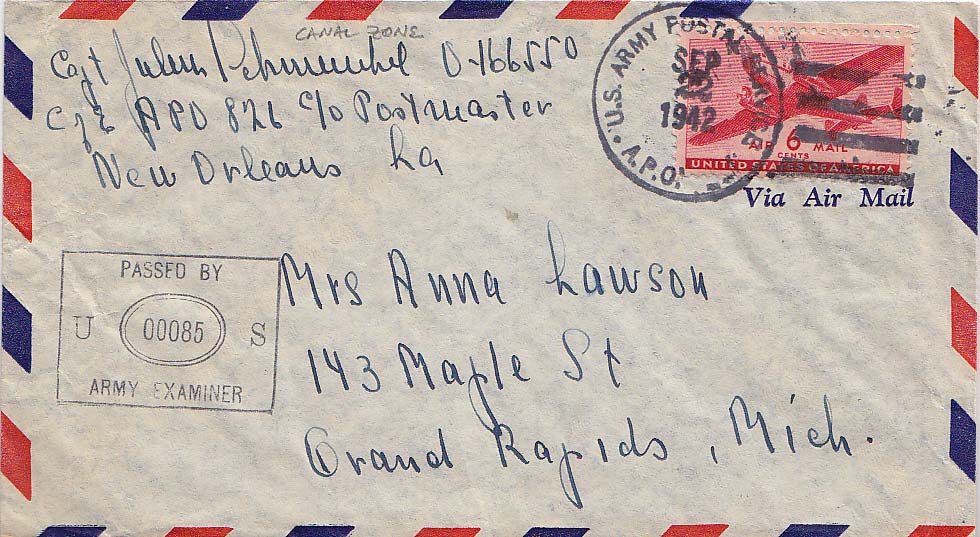 CANAL ZONE
Capt 0-166550
APO 826 c/o Postmaster
New Orleans La
U.S. ARMY POSTAL SERVICE
A.P.O.
SEP
1942
AIR 6 MAIL
CENTS
UNITED STATES OF AMERICA
Via Air Mail
PASSED BY
U 00085 S
ARMY EXAMINER
Mrs Anna Lawson
143 Maple St
Grand Rapids, Mich.